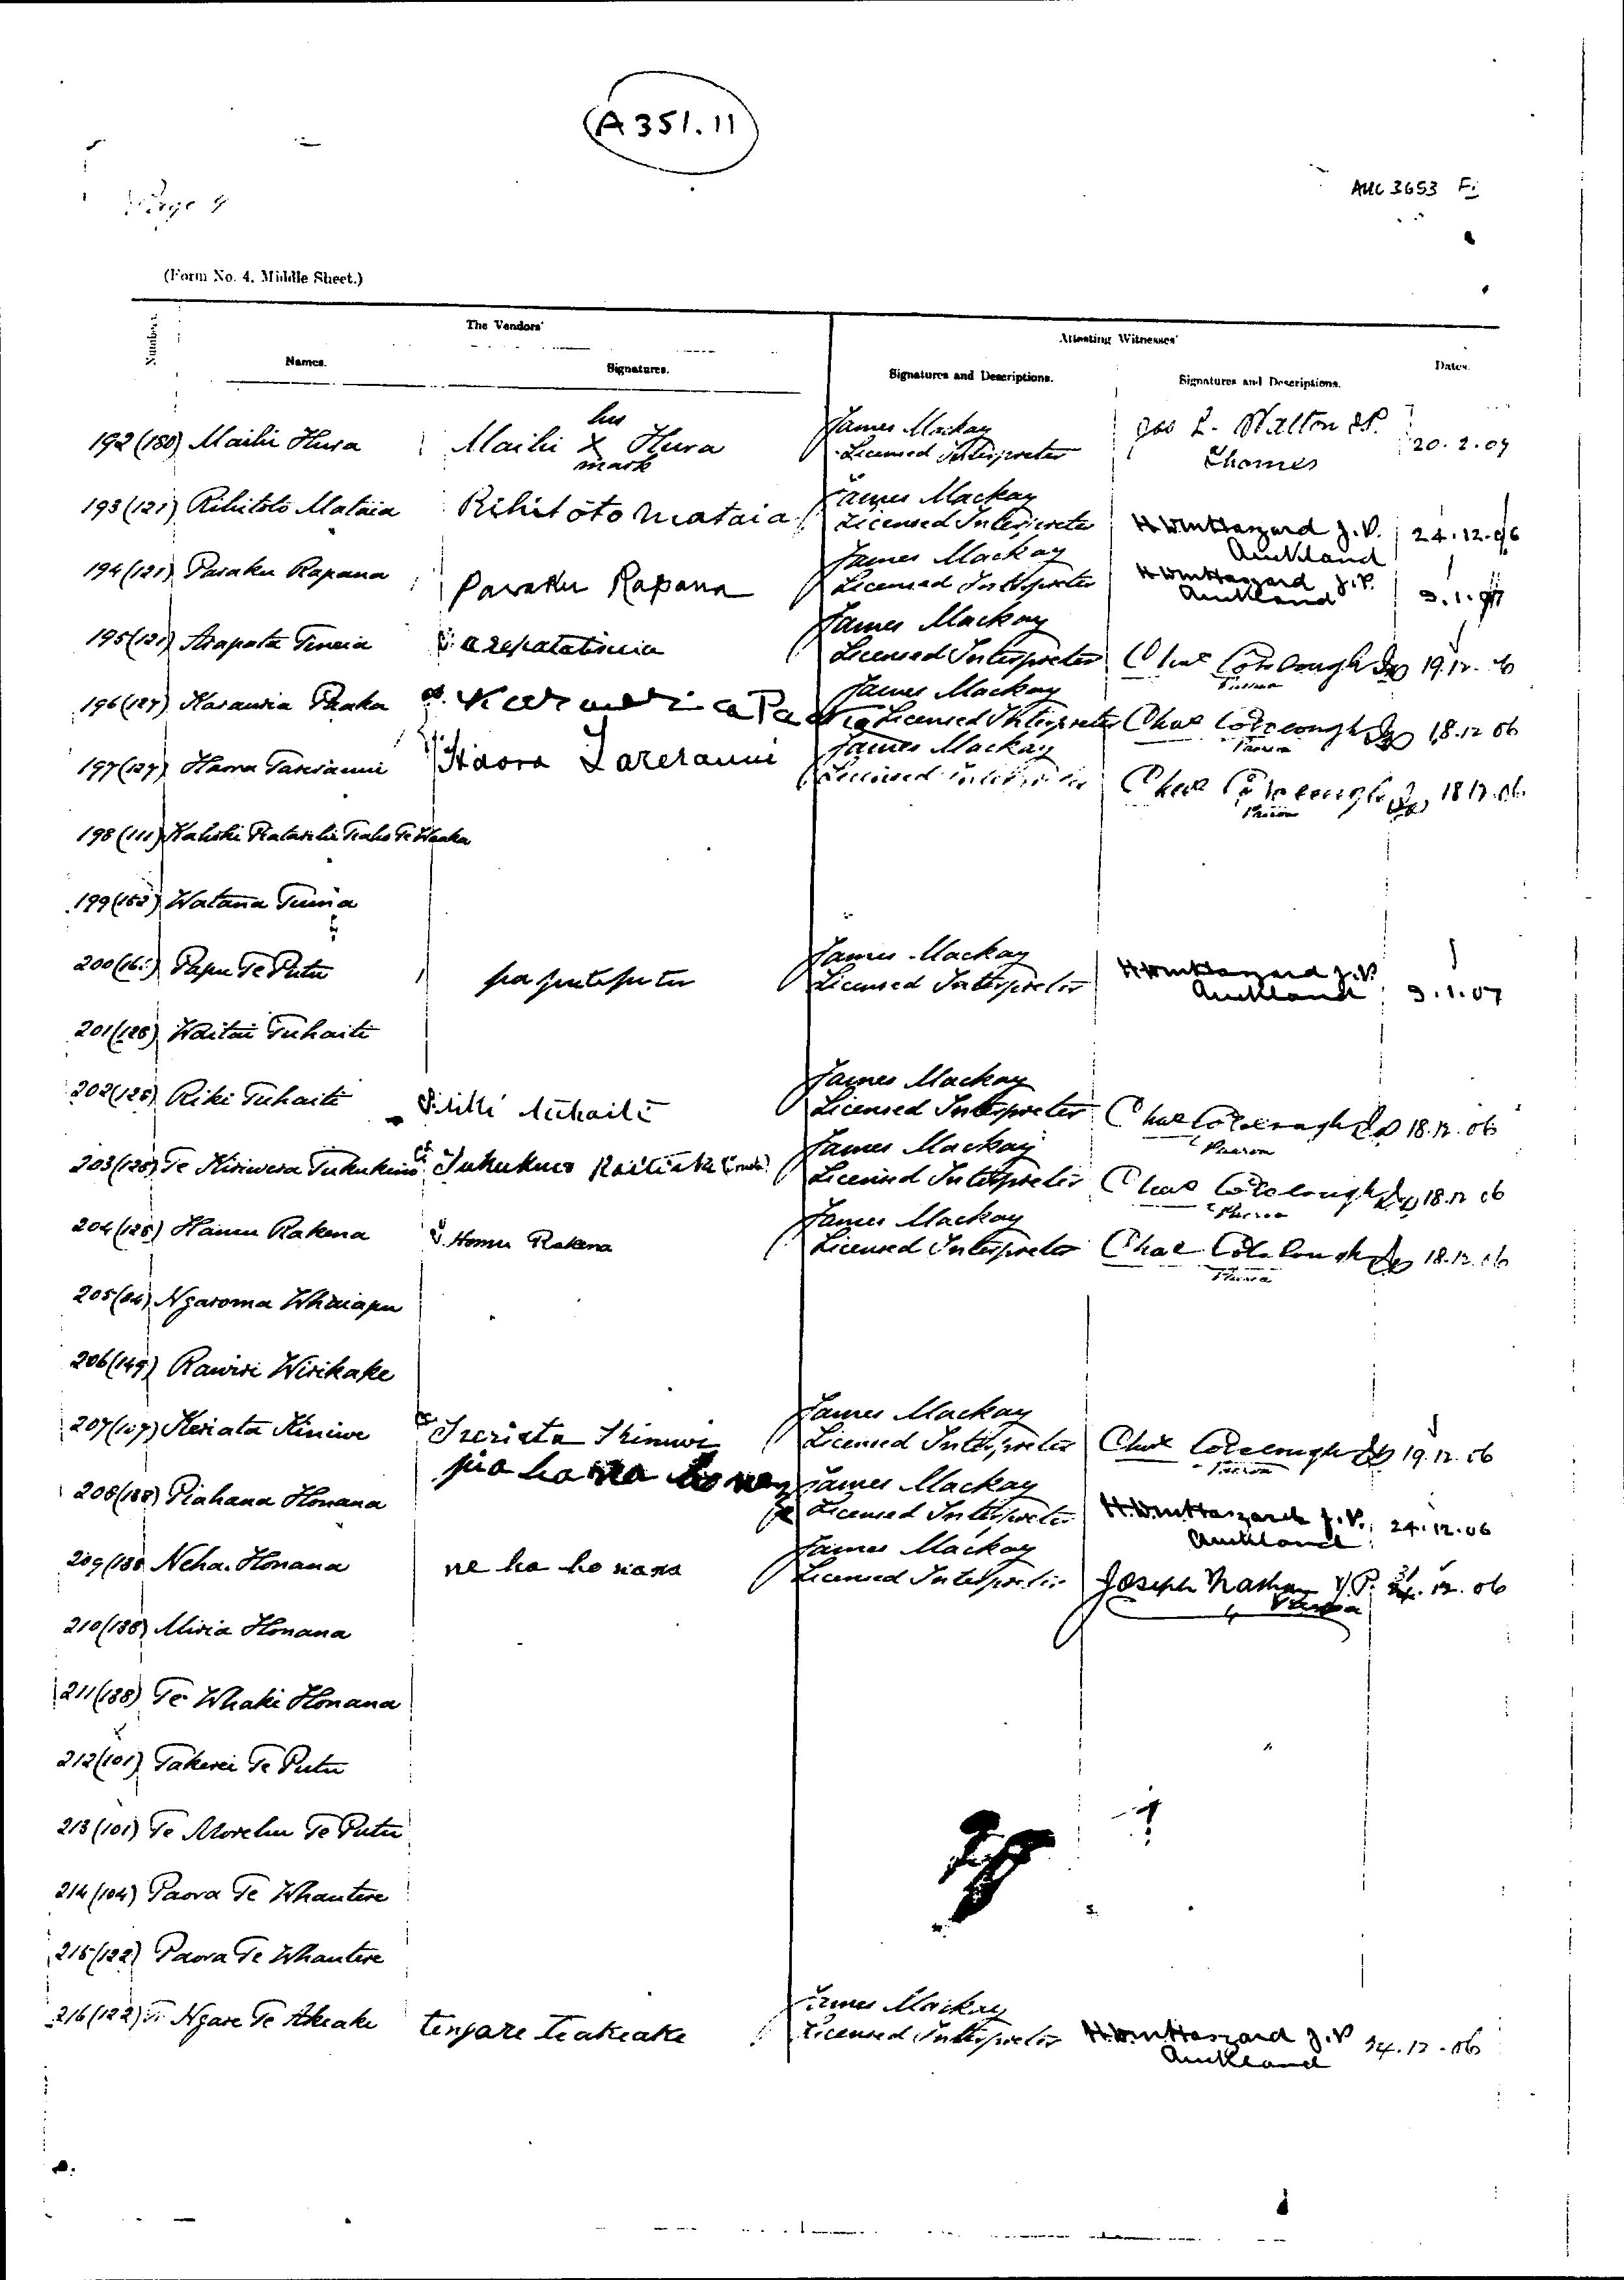 A351.11
AUC 3653
Page 9
(Form No. 4, Middle Sheet.)
Numbers. The Vendors' Attesting Witnesses' Dates.
Names. Signatures. Signatures and Descriptions. Signatures and Descriptions.
192 (180) Maihi Hura Maihi his X mark Hura James Mackay Licensed Interpreter Jas L. Walton J.P. Thames 20.2.07
193 (121) Rihitoto Mataia Rihitoto mataia James Mackay Licensed Interpreter H Wm Haszard J.P. Auckland 24.12.06
194 (121) Paraku Rapana Paraku Rapana James Mackay Licensed Interpreter H Wm Haszard J.P. Auckland 9.1.07
195 (121) Arapata Tineia James Mackay Licensed Interpreter Chas Colclough Paeroa 19.12.06
196 (127) Karauria Paaka Karauria Paaka James Mackay Licensed Interpreter Chas Colclough Paeroa 18.12.06
197 (127) Haora Tareranui Haora Tareranui James Mackay Licensed Interpreter Chas Colclough Paeroa 18.12.06
198 (111)
199 (152) Watana Tuma
200 Papu Te Putu paputeputu James Mackay Licensed Interpreter H Wm Haszard J.P. Auckland 9.1.07
201 (126) Waitai Tuhaiti
202 (126) Riki Tuhaiti Riki tuhaiti James Mackay Licensed Interpreter Chas Colclough Paeroa 18.12.06
203 (126) Te Kiriwera Tukukino Tukukino James Mackay Licensed Interpreter Chas Colclough Paeroa 18.12.06
204 (126) Hamu Rakena Homu Rakena James Mackay Licensed Interpreter Chas Colclough Paeroa 18.12.06
205 (84) Ngaroma Whaiapu
206 (149) Rawiri Wirikake
207 (107) Keriata Kiniwe James Mackay Licensed Interpreter Chas Colclough Paeroa 19.12.06
208 (188) Piahana Honana piahana honana James Mackay Licensed Interpreter H. Wm Haszard J.P. Auckland 24.12.06
209 (188 Neha Honana ne ha ho nana James Mackay Licensed Interpreter Joseph Nathan J.P. Paeroa 12.06
210 (188) Miria Honana
211 (188) Te Whaki Honana
212 (101) Takerei Te Putu
213 (101) Te Morehu Te Putu
214 (104) Paora Te Whautere
215 (122) Paora Te Whautere
216 (122) Te Ngare Te Akeake tengare teakeake James Mackay Licensed Interpreter H Wm Haszard J.P. Auckland 24.12.06